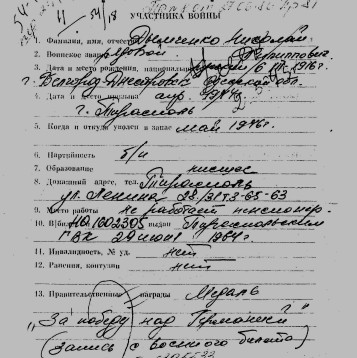 УЧАСТНИКА ВОЙНЫ
1. Фамилия, имя, отчество Демченко Николай
2. Воинское звание рядовой Филиппович
3. Дата и место рождения, национальность 1916г.
г. Белгород-Днестровск Одесской обл.
4. Дата и место призыва апр. 1944г
г. Тирасполь
5. Когда и откуда уволен в запас май 1946г.
6. Партийность б/п
7. Образование низшее
8. Домашний адрес, тел. Тирасполь
ул. Ленина 28/2 т. 3-65-63
9. Место работы не работает пенсионер
10. В/билет НО 1602305 выдан Тираспольским
ГВК 29 июня 1964г.
11. Инвалидность, № уд. нет
12. Ранения, контузии нет
13. Правительственные награды Медаль
„За победу над Германией"
(Запись с военного билета)